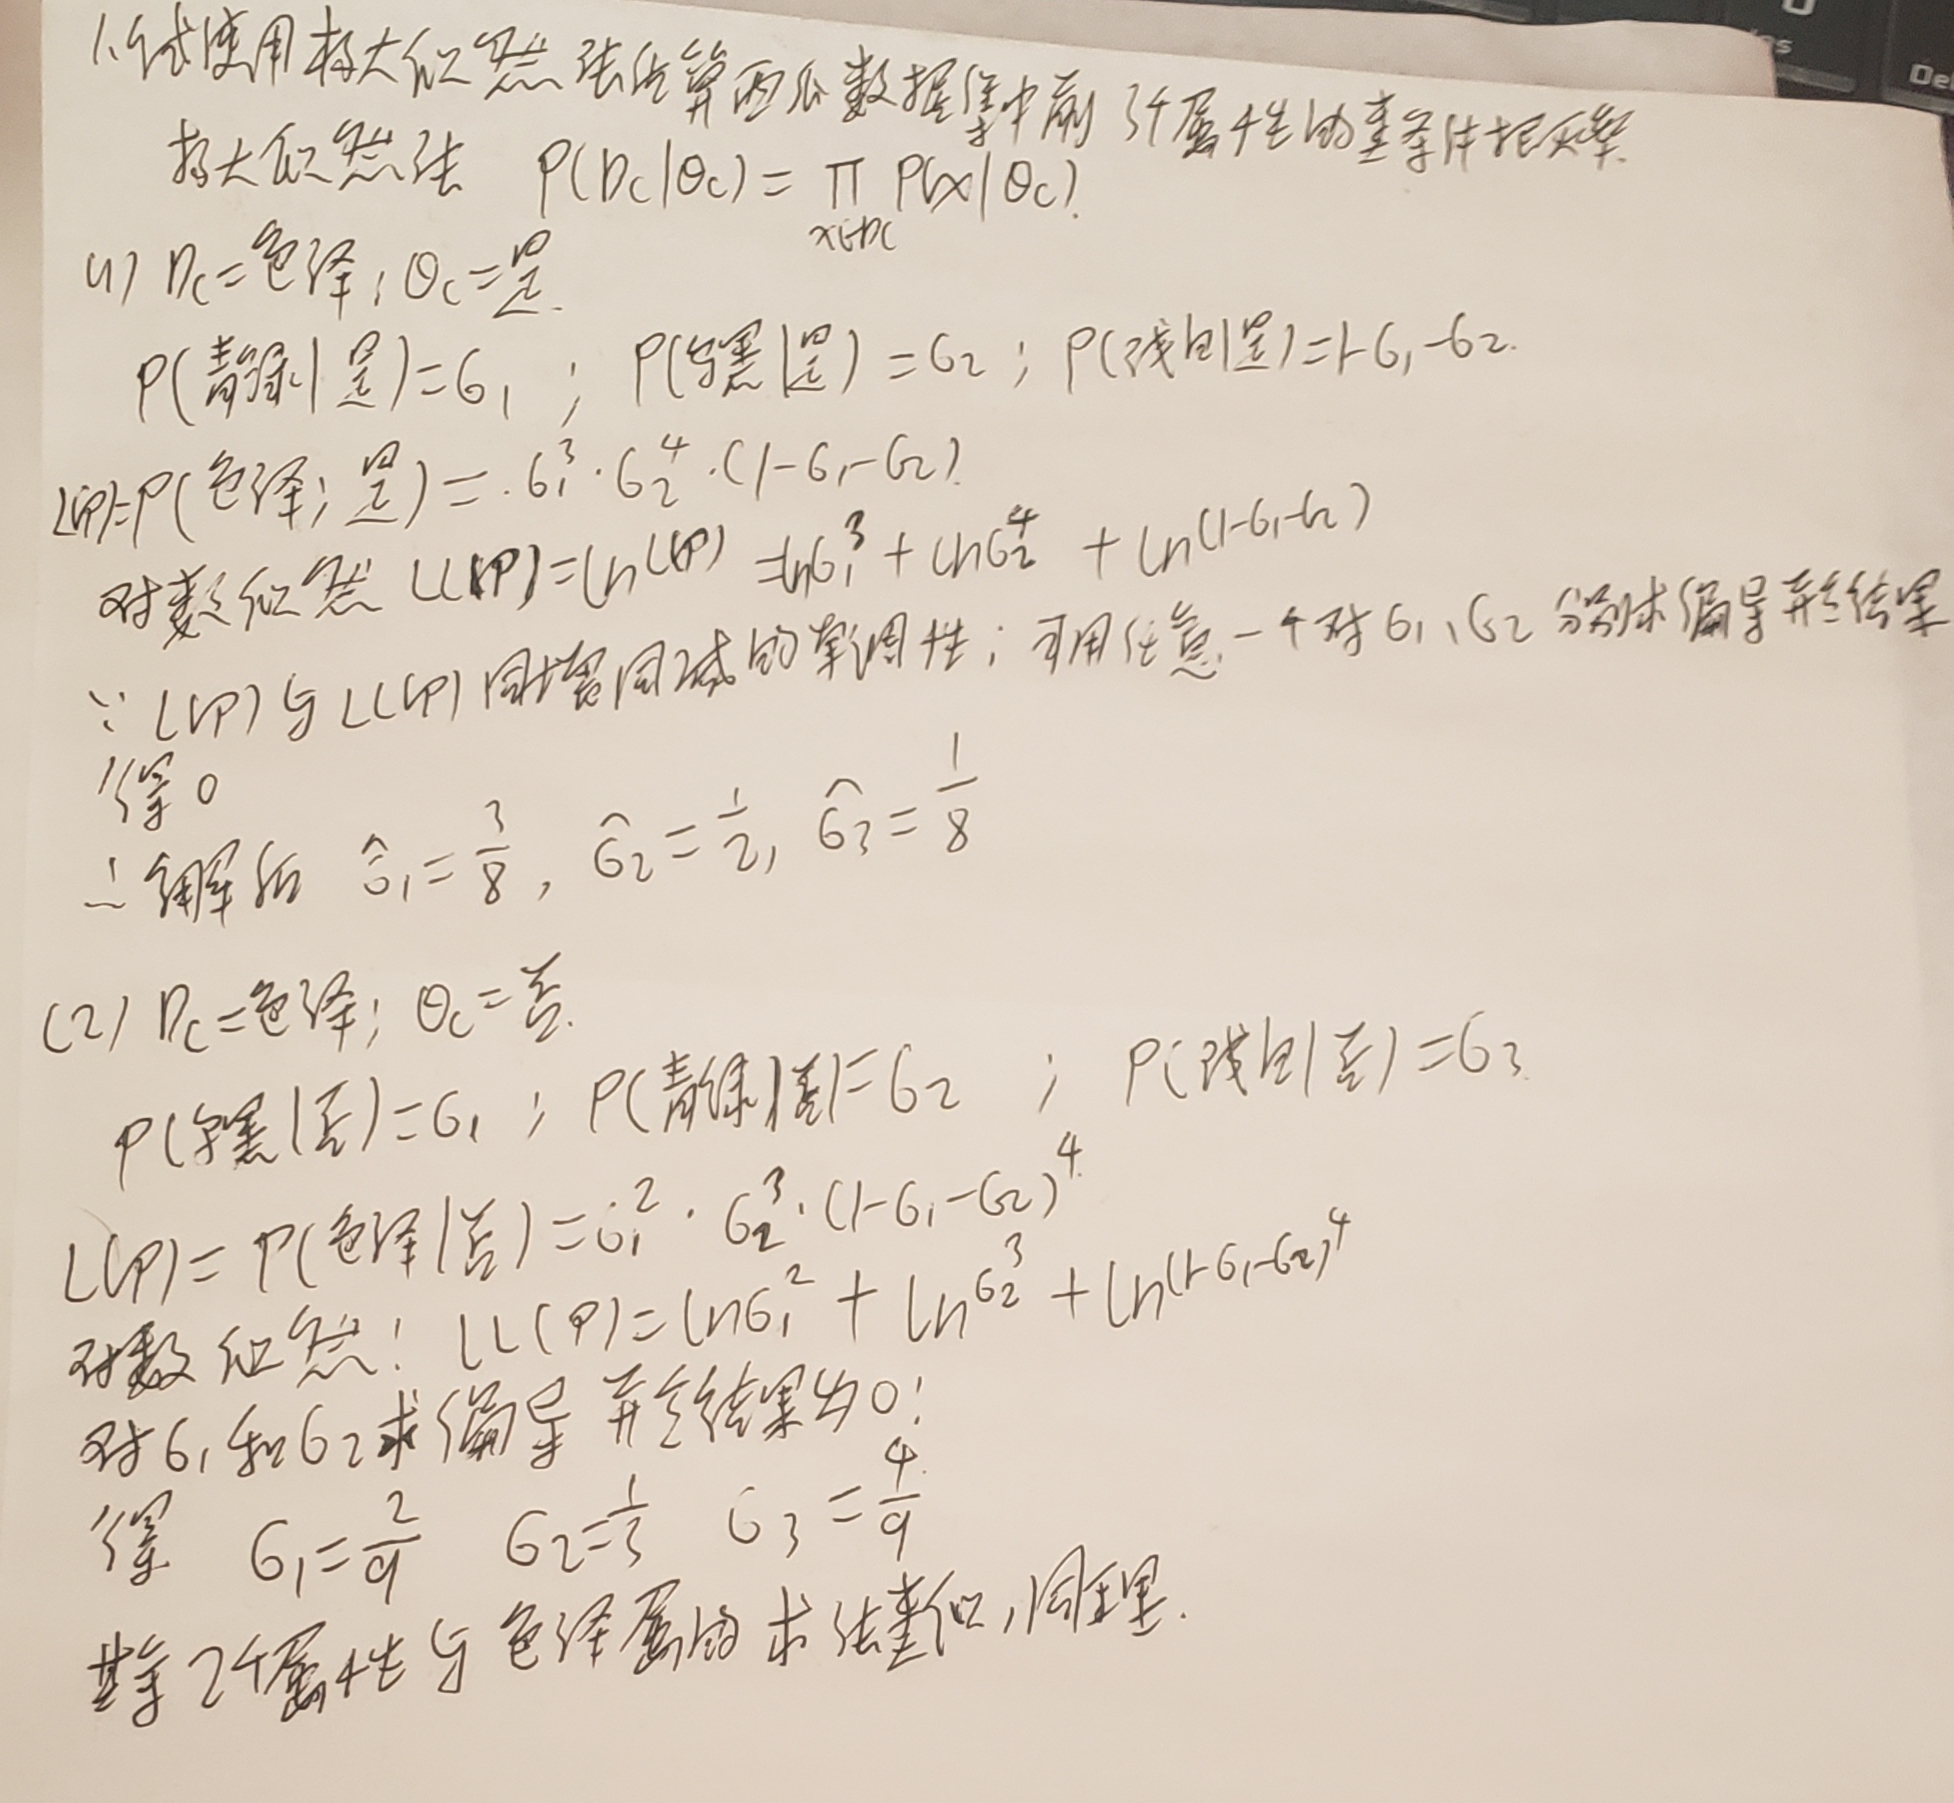 1.试使用极大似然法估算西瓜数据集中前3个属性的类条件概率.
极大似然法 P(Dc|θc)=∏ P(x|θc).
x∈Dc
(1) Dc=色泽; θc=是.
P(青绿|是)=6₁ ; P(乌黑|是)=6₂ ; P(浅白|是)=1-6₁-6₂.
L(P)=P(色泽;是)=.6₁³·6₂⁴·(1-6₁-6₂).
对数似然 LL(P)=Ln^L(P) =Ln6₁³+Ln6₂⁴+Ln^(1-6₁-6₂)
∵L(P)与LL(P)同增同减的单调性;可用任意一个对6₁、6₂分别求偏导并令结果
得0
∴解后 6̂₁=3/8, 6̂₂=1/2, 6̂₃=1/8
(2) Dc=色泽; θc=否.
P(乌黑|否)=6₁; P(青绿|否)=6₂ ; P(浅白|否)=6₃.
L(P)=P(色泽|否)=6₁²·6₂³·(1-6₁-6₂)⁴
对数似然: LL(P)=Ln6₁²+Ln6₂³+Ln(1-6₁-6₂)⁴
对6₁和6₂求偏导并令结果为0:
得 6₁=2/9 6₂=1/3 6₃=4/9
其余2个属性与色泽属的求法类似,同理.